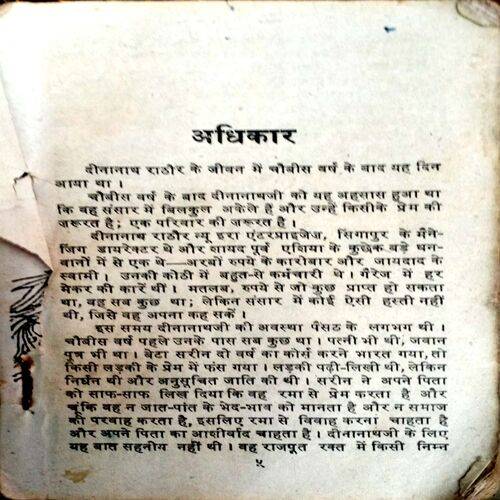 अधिकार
दीनानाथ राठौर के जीवन में चौबीस वर्ष के बाद यह दिन
आया था ।
चौबीस वर्ष के बाद दीनानाथजी को यह अहसास हुआ था
कि वह संसार में बिलकुल अकेले हैं और उन्हें किसीके प्रेम की
जरूरत है; एक परिवार की जरूरत है ।
दीनानाथ राठौर न्यू इरा एंटरप्राइजेज, सिंगापुर के मैने-
जिंग डायरेक्टर थे और शायद पूर्व एशिया के कुछेक बड़े धन-
वानों में से एक थे—अरबों रुपये के कारोबार और जायदाद के
स्वामी । उनकी कोठी में बहुत-से कर्मचारी थे । गैरेज में हर
मेकर की कारें थीं । मतलब, रुपये से जो कुछ प्राप्त हो सकता
था, वह सब कुछ था; लेकिन संसार में कोई ऐसी हस्ती नहीं
थी, जिसे वह अपना कह सकें ।
इस समय दीनानाथजी की अवस्था पैंसठ के लगभग थी ।
चौबीस वर्ष पहले उनके पास सब कुछ था । पत्नी भी थी, जवान
पुत्र भी था । बेटा सरीन दो वर्ष का कोर्स करने भारत गया, तो
किसी लड़की के प्रेम में फंस गया । लड़की पढ़ी-लिखी थी, लेकिन
निर्धन थी और अनुसूचित जाति की थी । सरीन ने अपने पिता
को साफ-साफ लिख दिया कि वह रमा से प्रेम करता है और
चूंकि वह न जात-पांत के भेद-भाव को मानता है और न समाज
की परवाह करता है, इसलिए रमा से विवाह करना चाहता है
और अपने पिता का आशीर्वाद चाहता है । दीनानाथजी के लिए
यह बात सहनीय नहीं थी । वह राजपूत रक्त में किसी निम्न
५